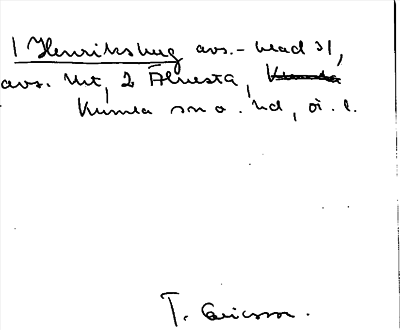 1 Henriksberg avs.- blad 31,
avs. Mt, 2 Älvesta, Kumla
Kumla sn o. hd, ö. l.
T. Ericsson.